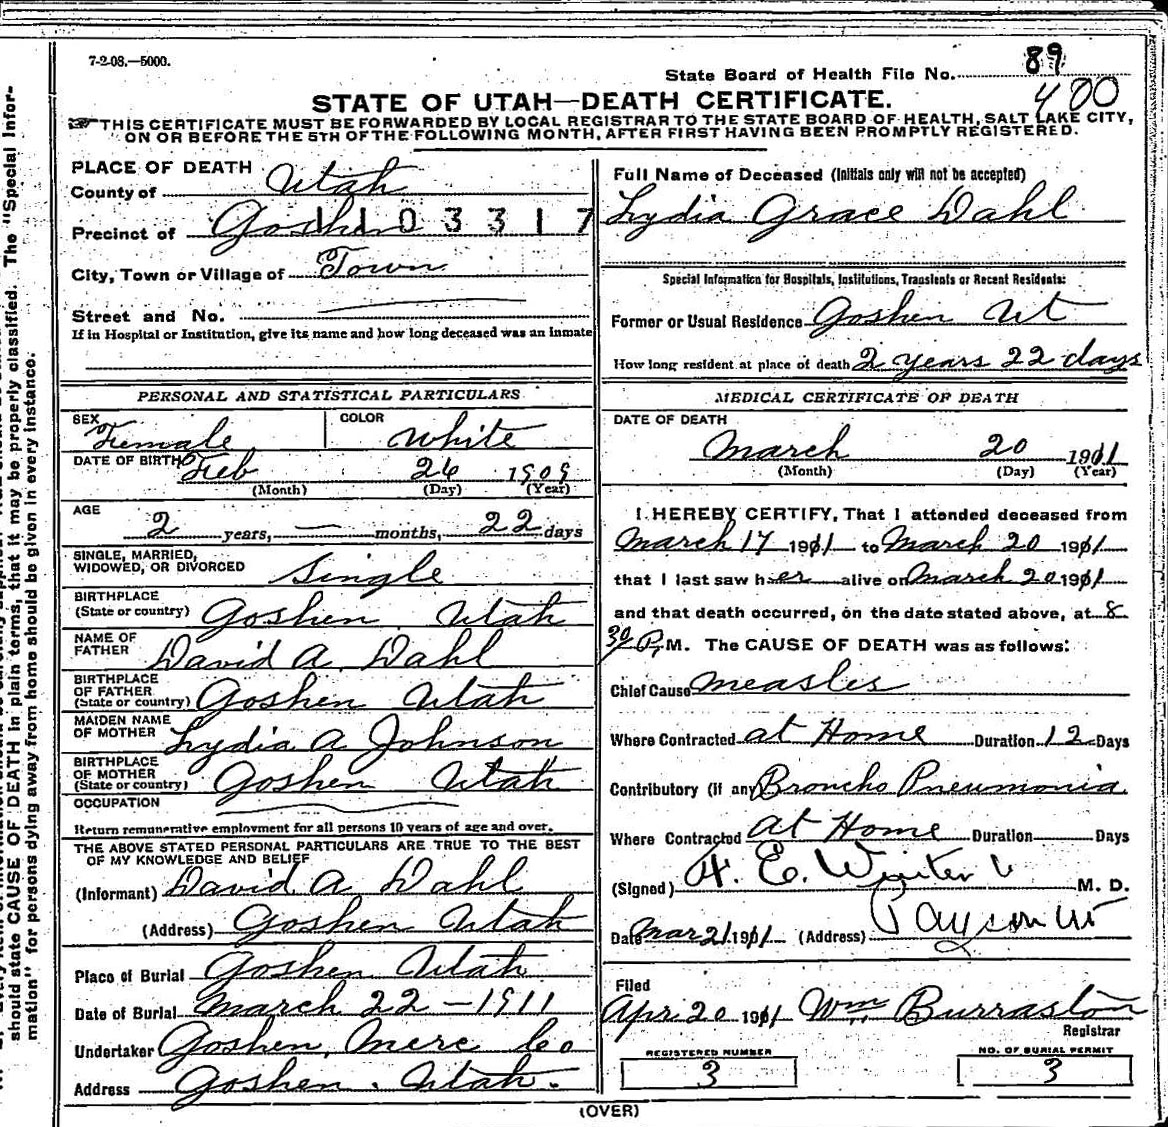 7-2-08.—5000.
State Board of Health File No. 89
400
STATE OF UTAH—DEATH CERTIFICATE.
THIS CERTIFICATE MUST BE FORWARDED BY LOCAL REGISTRAR TO THE STATE BOARD OF HEALTH, SALT LAKE CITY,
ON OR BEFORE THE 5TH OF THE FOLLOWING MONTH, AFTER FIRST HAVING BEEN PROMPTLY REGISTERED.
PLACE OF DEATH
County of Utah
Precinct of Goshen 1103317
City, Town or Village of Town
Street and No.
If in Hospital or Institution, give its name and how long deceased was an inmate
PERSONAL AND STATISTICAL PARTICULARS
SEX Female COLOR White
DATE OF BIRTH Feb 26 1909
(Month) (Day) (Year)
AGE
2 years, — months, 22 days
SINGLE, MARRIED,
WIDOWED, OR DIVORCED Single
BIRTHPLACE
(State or country) Goshen Utah
NAME OF
FATHER David A Dahl
BIRTHPLACE
OF FATHER
(State or country) Goshen Utah
MAIDEN NAME
OF MOTHER Lydia A Johnson
BIRTHPLACE
OF MOTHER
(State or country) Goshen Utah
OCCUPATION
Return remunerative employment for all persons 10 years of age and over.
THE ABOVE STATED PERSONAL PARTICULARS ARE TRUE TO THE BEST
OF MY KNOWLEDGE AND BELIEF
(Informant) David A Dahl
(Address) Goshen Utah
Place of Burial Goshen Utah
Date of Burial March 22 – 1911
Undertaker Goshen, Merc Co
Address Goshen. Utah.
Full Name of Deceased (Initials only will not be accepted)
Lydia Grace Dahl
Special Information for Hospitals, Institutions, Transients or Recent Residents:
Former or Usual Residence Goshen Ut
How long resident at place of death 2 years 22 days
MEDICAL CERTIFICATE OF DEATH
DATE OF DEATH
March 20 1911
(Month) (Day) (Year)
I HEREBY CERTIFY, That I attended deceased from
March 17 1911 to March 20 1911
that I last saw her alive on March 20 1911
and that death occurred, on the date stated above, at 8
30 P. M. The CAUSE OF DEATH was as follows:
Chief Cause measles
Where Contracted at Home Duration 12 Days
Contributory (if any) Broncho Pneumonia
Where Contracted at Home Duration Days
(Signed) A. E. M. D.
Date Mar 21 1911 (Address) Payson Ut
Filed
Apr 20 1911 Wm Burraston
Registrar
REGISTERED NUMBER
3
NO. OF BURIAL PERMIT
3
(OVER)
should state CAUSE OF DEATH in plain terms, that it may be properly classified. The "Special Infor-
mation" for persons dying away from home should be given in every instance.